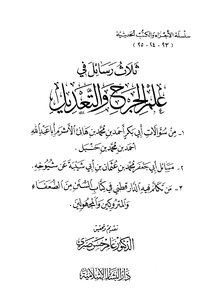 سلسلة الأجزاء والكتب الحديثية
(٢٣ - ٢٤ - ٢٥)
ثلاث رسائل في
علم الجرح والتعديل
١ - من سؤالات أبي بكر أحمد بن محمد بن هانئ الأثرم أبا عبد الله
أحمد بن محمد بن حنبل .
٢ - مسائل أبي جعفر محمد بن عثمان بن أبي شيبة عن شيوخه .
٣ - من تكلم فيه الدارقطني في كتاب السنن من الضعفاء
والمتروكين والمجهولين .
الدكتور عامر حسن صبري
دار البشائر الإسلامية